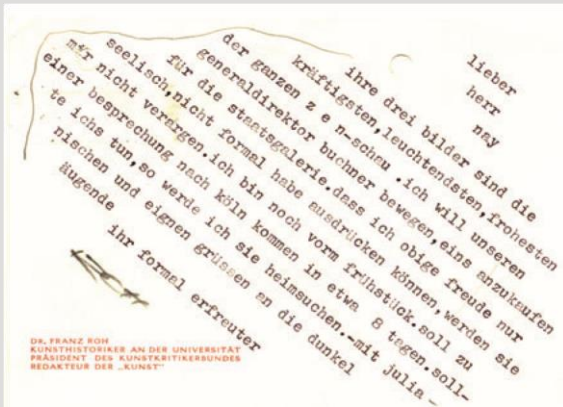 lieber
herr
nay
ihre drei bilder sind die
kräftigsten,leuchtendsten,frohesten
der ganzen z e n-schau .ich will unseren
generaldirektor buchner bewegen,eins anzukaufen
für die staatsgalerie.dass ich obige freude nur
seelisch,nicht formal habe ausdrücken können,werden sie
mir nicht verargen.ich bin noch vorm frühstück.soll zu
einer besprechung nach köln kommen in etwa 8 tagen.soll-
te ichs tun,so werde ich sie heimsuchen.-mit julia_
nischen und eignen grüssen an die dunkel
äugende
ihr formal erfreuter
DR. FRANZ ROH
KUNSTHISTORIKER AN DER UNIVERSITÄT
PRÄSIDENT DES KUNSTKRITIKERBUNDES
REDAKTEUR DER „KUNST"